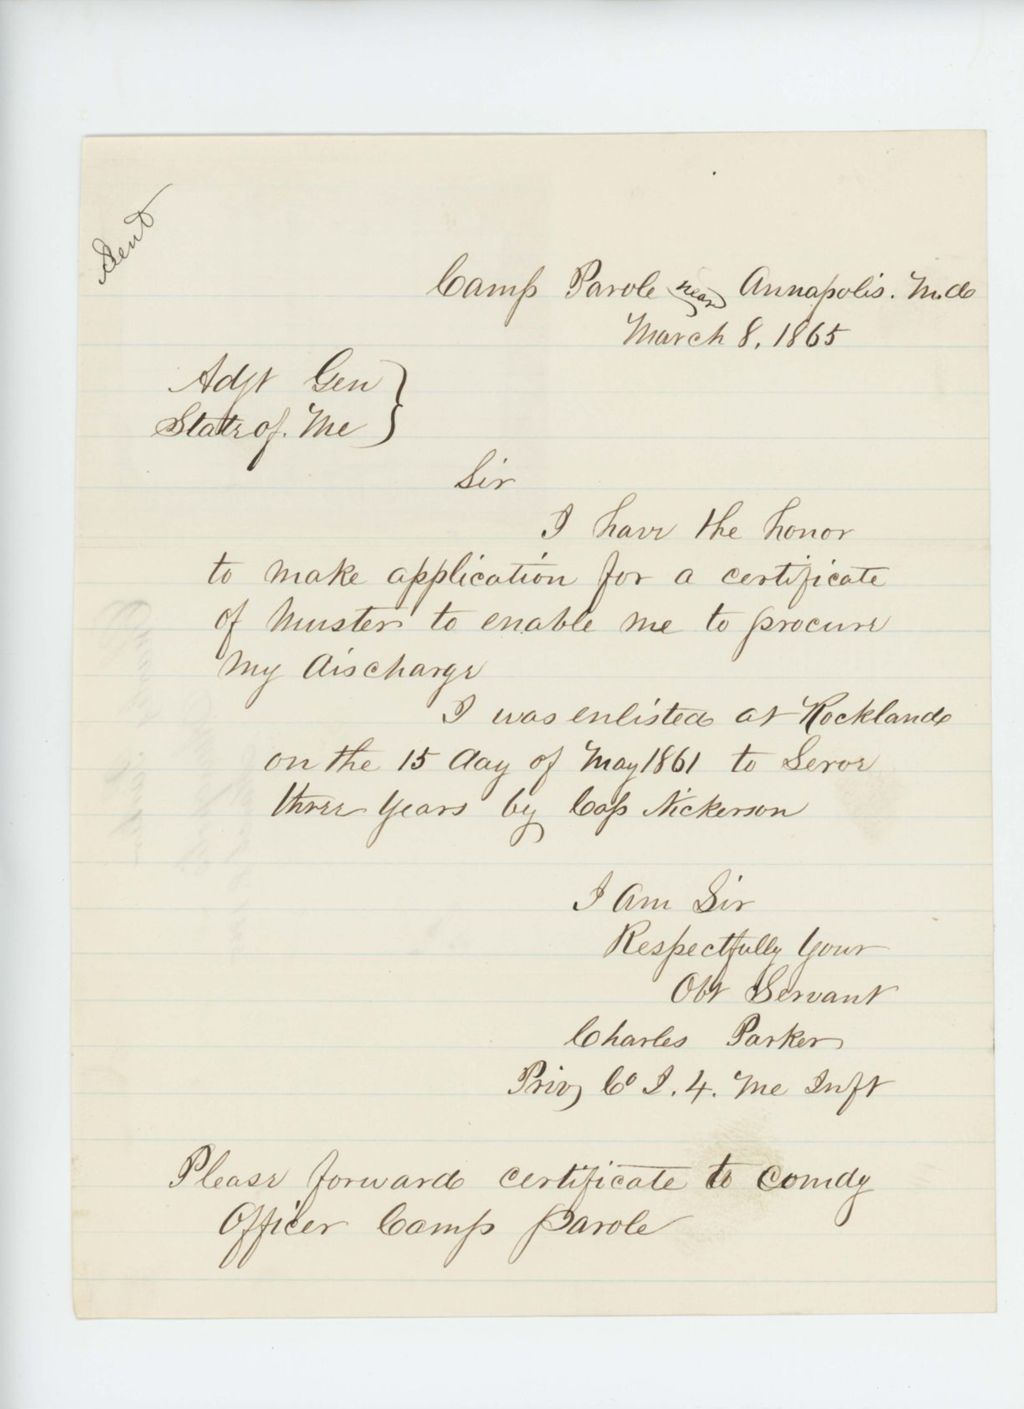 Sent
Camp Parole near Annapolis. Md
March 8, 1865
Adjt Gen
State of. Me
Sir
I have the honor
to make application for a certificate
of Muster to enable me to procure
my discharge
I was enlisted at Rockland
on the 15 day of May 1861 to Serve
three years by Cap Nickerson
I am Sir
Respectfully Your
Obt Servant
Charles Parker
Priv Co I. 4. Me Inft
Please forward certificate to comdg
Officer Camp Parole